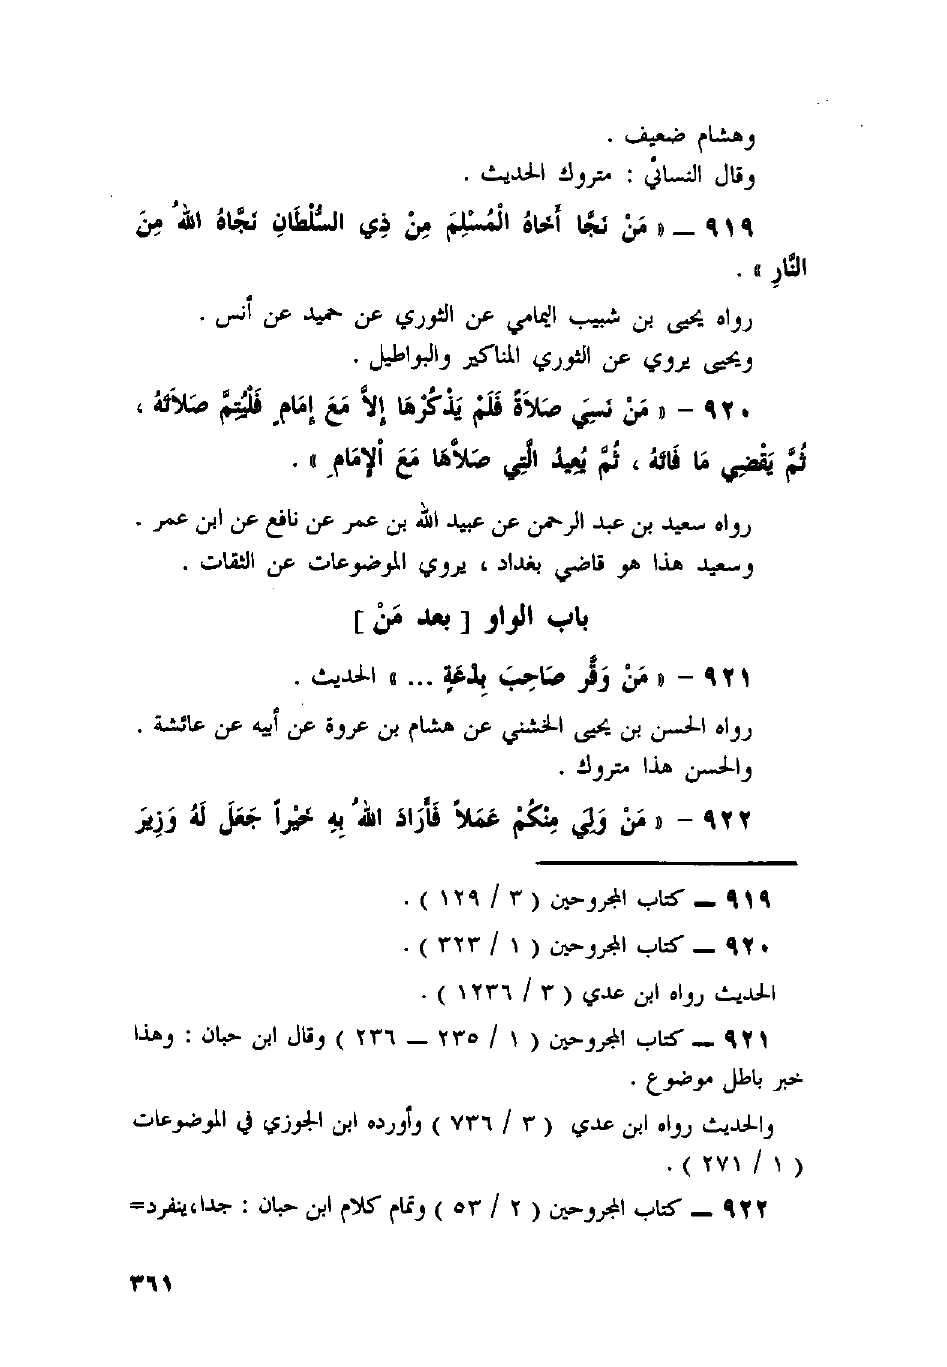 وهشام ضعيف .
وقال النسائي : متروك الحديث .
٩١٩ ــ « مَنْ نَجَّا أَخَاهُ الْمُسْلِمَ مِنْ ذِي السُّلْطَانِ نَجَّاهُ اللهُ مِنَ
النَّارِ » .
رواه يحيى بن شبيب اليمامي عن الثوري عن حميد عن أنس .
ويحيى يروي عن الثوري المناكير والبواطيل .
٩٢٠ - « مَنْ نَسِيَ صَلاَةً فَلَمْ يَذْكُرْهَا إِلاَّ مَعَ إِمَامٍ فَلْيُتِمَّ صَلاَتَهُ ،
ثُمَّ يَقْضِي مَا فَاتَهُ ، ثُمَّ يُعِيدُ الَّتِي صَلاَّهَا مَعَ ألإِمَامِ » .
رواه سعيد بن عبد الرحمن عن عبيد الله بن عمر عن نافع عن ابن عمر .
وسعيد هذا هو قاضي بغداد ، يروي الموضوعات عن الثقات .
باب الواو [ بعد مَنْ ]
٩٢١ - « مَنْ وَقَّرَ صَاحِبَ بِدْعَةٍ ... » الحديث .
رواه الحسن بن يحيى الخشني عن هشام بن عروة عن أبيه عن عائشة .
والحسن هذا متروك .
٩٢٢ - « مَنْ وَلِيَ مِنْكُمْ عَمَلاً فَأَرَادَ اللهُ بِهِ خَيْراً جَعَلَ لَهُ وَزِيرَ
٩١٩ ــ كتاب المجروحين ( ٣ / ١٢٩ ) .
٩٢٠ ــ كتاب المجروحين ( ١ / ٣٢٣ ) .
الحديث رواه ابن عدي ( ٣ / ١٢٣٦ ) .
٩٢١ ــ كتاب المجروحين ( ١ / ٢٣٥ ــ ٢٣٦ ) وقال ابن حبان : وهذا
خبر باطل موضوع .
والحديث رواه ابن عدي ( ٣ / ٧٣٦ ) وأورده ابن الجوزي في الموضوعات
( ١ / ٢٧١ ) .
٩٢٢ ــ كتاب المجروحين ( ٢ / ٥٣ ) وتمام كلام ابن حبان : جدا،ينفرد=
٣٦١